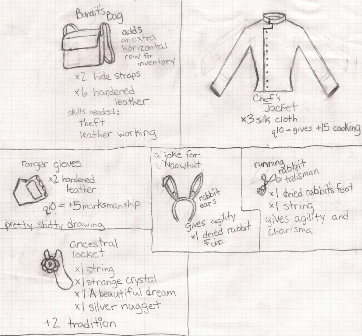 Bandit's Bag
adds
an extra
horizontal
row for
inventory
x2 hide straps
x6 hardened
leather
skills needed:
theft
leather working
Chef's
Jacket
x3 silk cloth
q10 - gives +15 cooking
ranger gloves
x2 hardened
leather
q10 = +5 marksmanship
pretty shitty drawing
a joke for
rabbit
ears
gives agility
x1 dried rabbit
fur
running
rabbit
talisman
x1 dried rabbit's foot
x1 string
gives agility and
charisma
ancestral
locket
x1 string
x1 strange crystal
x1 A beautiful dream
x1 silver nugget
+2 tradition